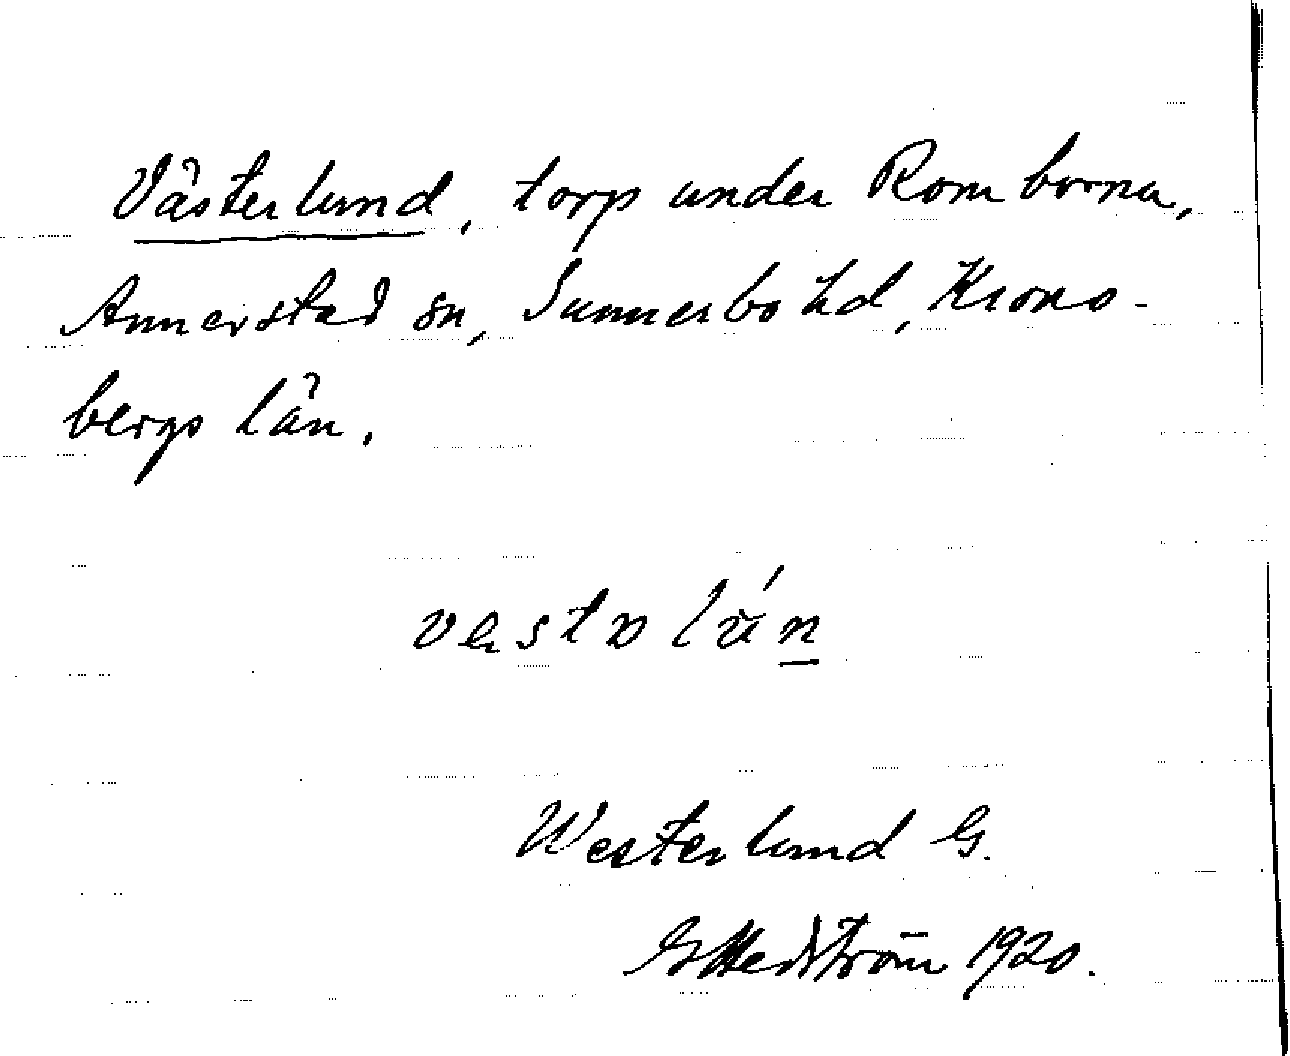 Västerlund, torp under Romborna,
Annerstad sn, Sunnerbo hd, Krono-
bergs län.
Westerlund G.
GHedström 1920.